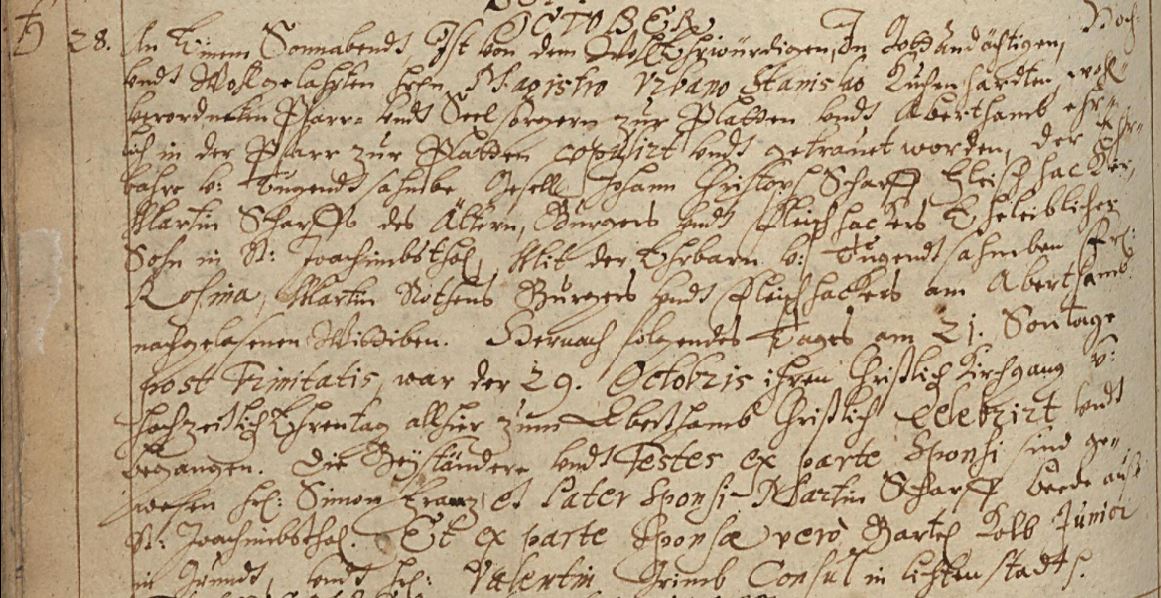 OCTOBER
28. An Einem Sonnabendt Ist von dem WollEhrwürdigen, In Gott andächtigen, Hoch-
undt Wollgelahrten Hrln Magistro Urbano Stanislao wohl-
verordneten Pfarr- undt Seelsorgern zur Platten undt Aberthamb ehr-
lich in der Pfarr zur Platten copulirt undt getrauet worden, der Ehr-
bahre v: Tugendtsahmbe Gesell Johann Christoph Scharff Fleischhacker,
Martin Scharffs des Ältern, Bürgers undt Fleischhackers Eheleiblicher
Sohn in St: Joachimbsthal, Mit der Ehrbarn v: Tugendtsahmben Fr:
Rosina, Martin Rothens Bürgers undt Fleischhackers am Aberthamb
nachgelasenen Wittiben. Hernach folgendes Tages am 21. Sontage
post Trinitatis, war der 29. Octobris ihren Christlich Kirchgang v:
Hochzeitlich Ehrentag allhier zum Aberthamb Christlich Celebrirt undt
begangen. Die Beyständere undt Testes ex parte Sponsi sind ge-
wesen Hrl: Simon Frantz et Pater Sponsi Martin Scharff beede auß
St: Joachimbsthal. Et ex parte Sponsæ vero Bartel Kolb Junior
im Grundt, undt Hrl: Valentin Grimb Consul in lichtenstadt.